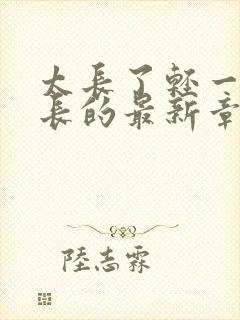 太長了輕一
長的最新章
陸志霖